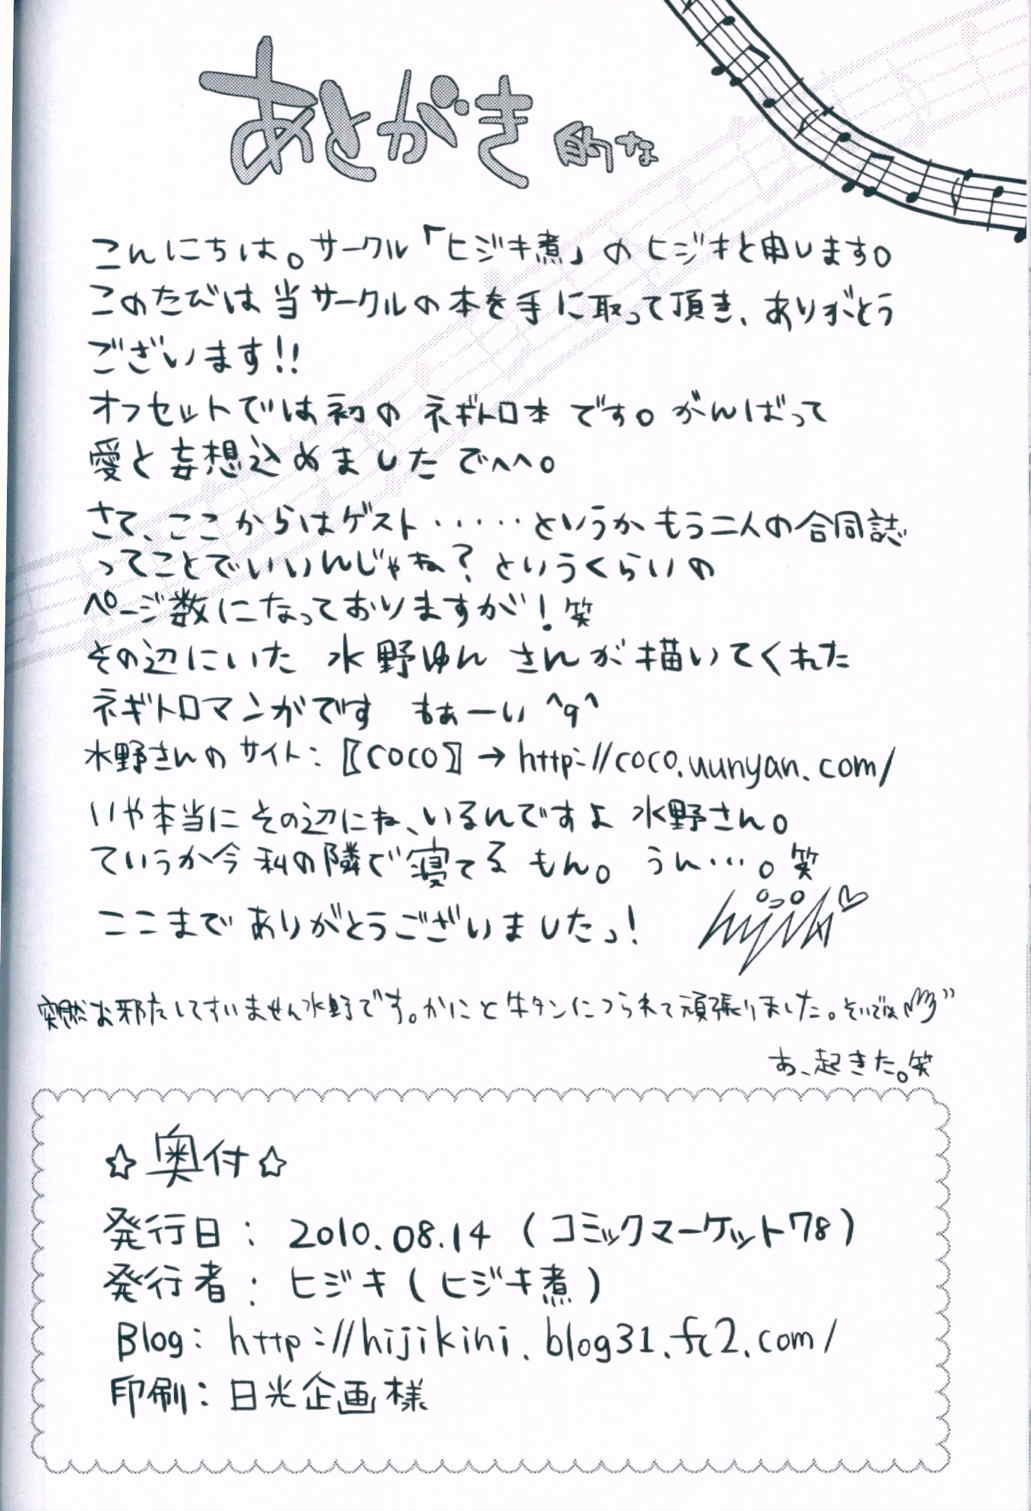 あとがき的な
こんにちは。サークル「ヒジキ煮」のヒジキと申します。
このたびは当サークルの本を手に取って頂き、ありがとう
ございます!!
オフセットでは初のネギトロ本です。がんばって
愛と妄想込めましたでへへ。
さて、ここからはゲスト・・・・・というかもう二人の合同誌
ってことでいいんじゃね?というくらいの
ページ数になっておりますが!笑
その辺にいた 水野ゆん さんが描いてくれた
ネギトロマンガです もぁーい ^q^
水野さんのサイト:〖COCO〗→http://coco.uunyan.com/
いや本当にその辺にね、いるんですよ 水野さん。
ていうか今私の隣で寝てるもん。 うん…。笑
ここまでありがとうございましたっ!
hijiki♡
突然お邪魔してすいません水野です。かにと牛タンにつられて頑張りました。そいでは
あ、起きた。笑
☆奥付☆
発行日: 2010.08.14 (コミックマーケット78)
発行者: ヒジキ(ヒジキ煮)
Blog: http://hijikini.blog31.fc2.com/
印刷: 日光企画様